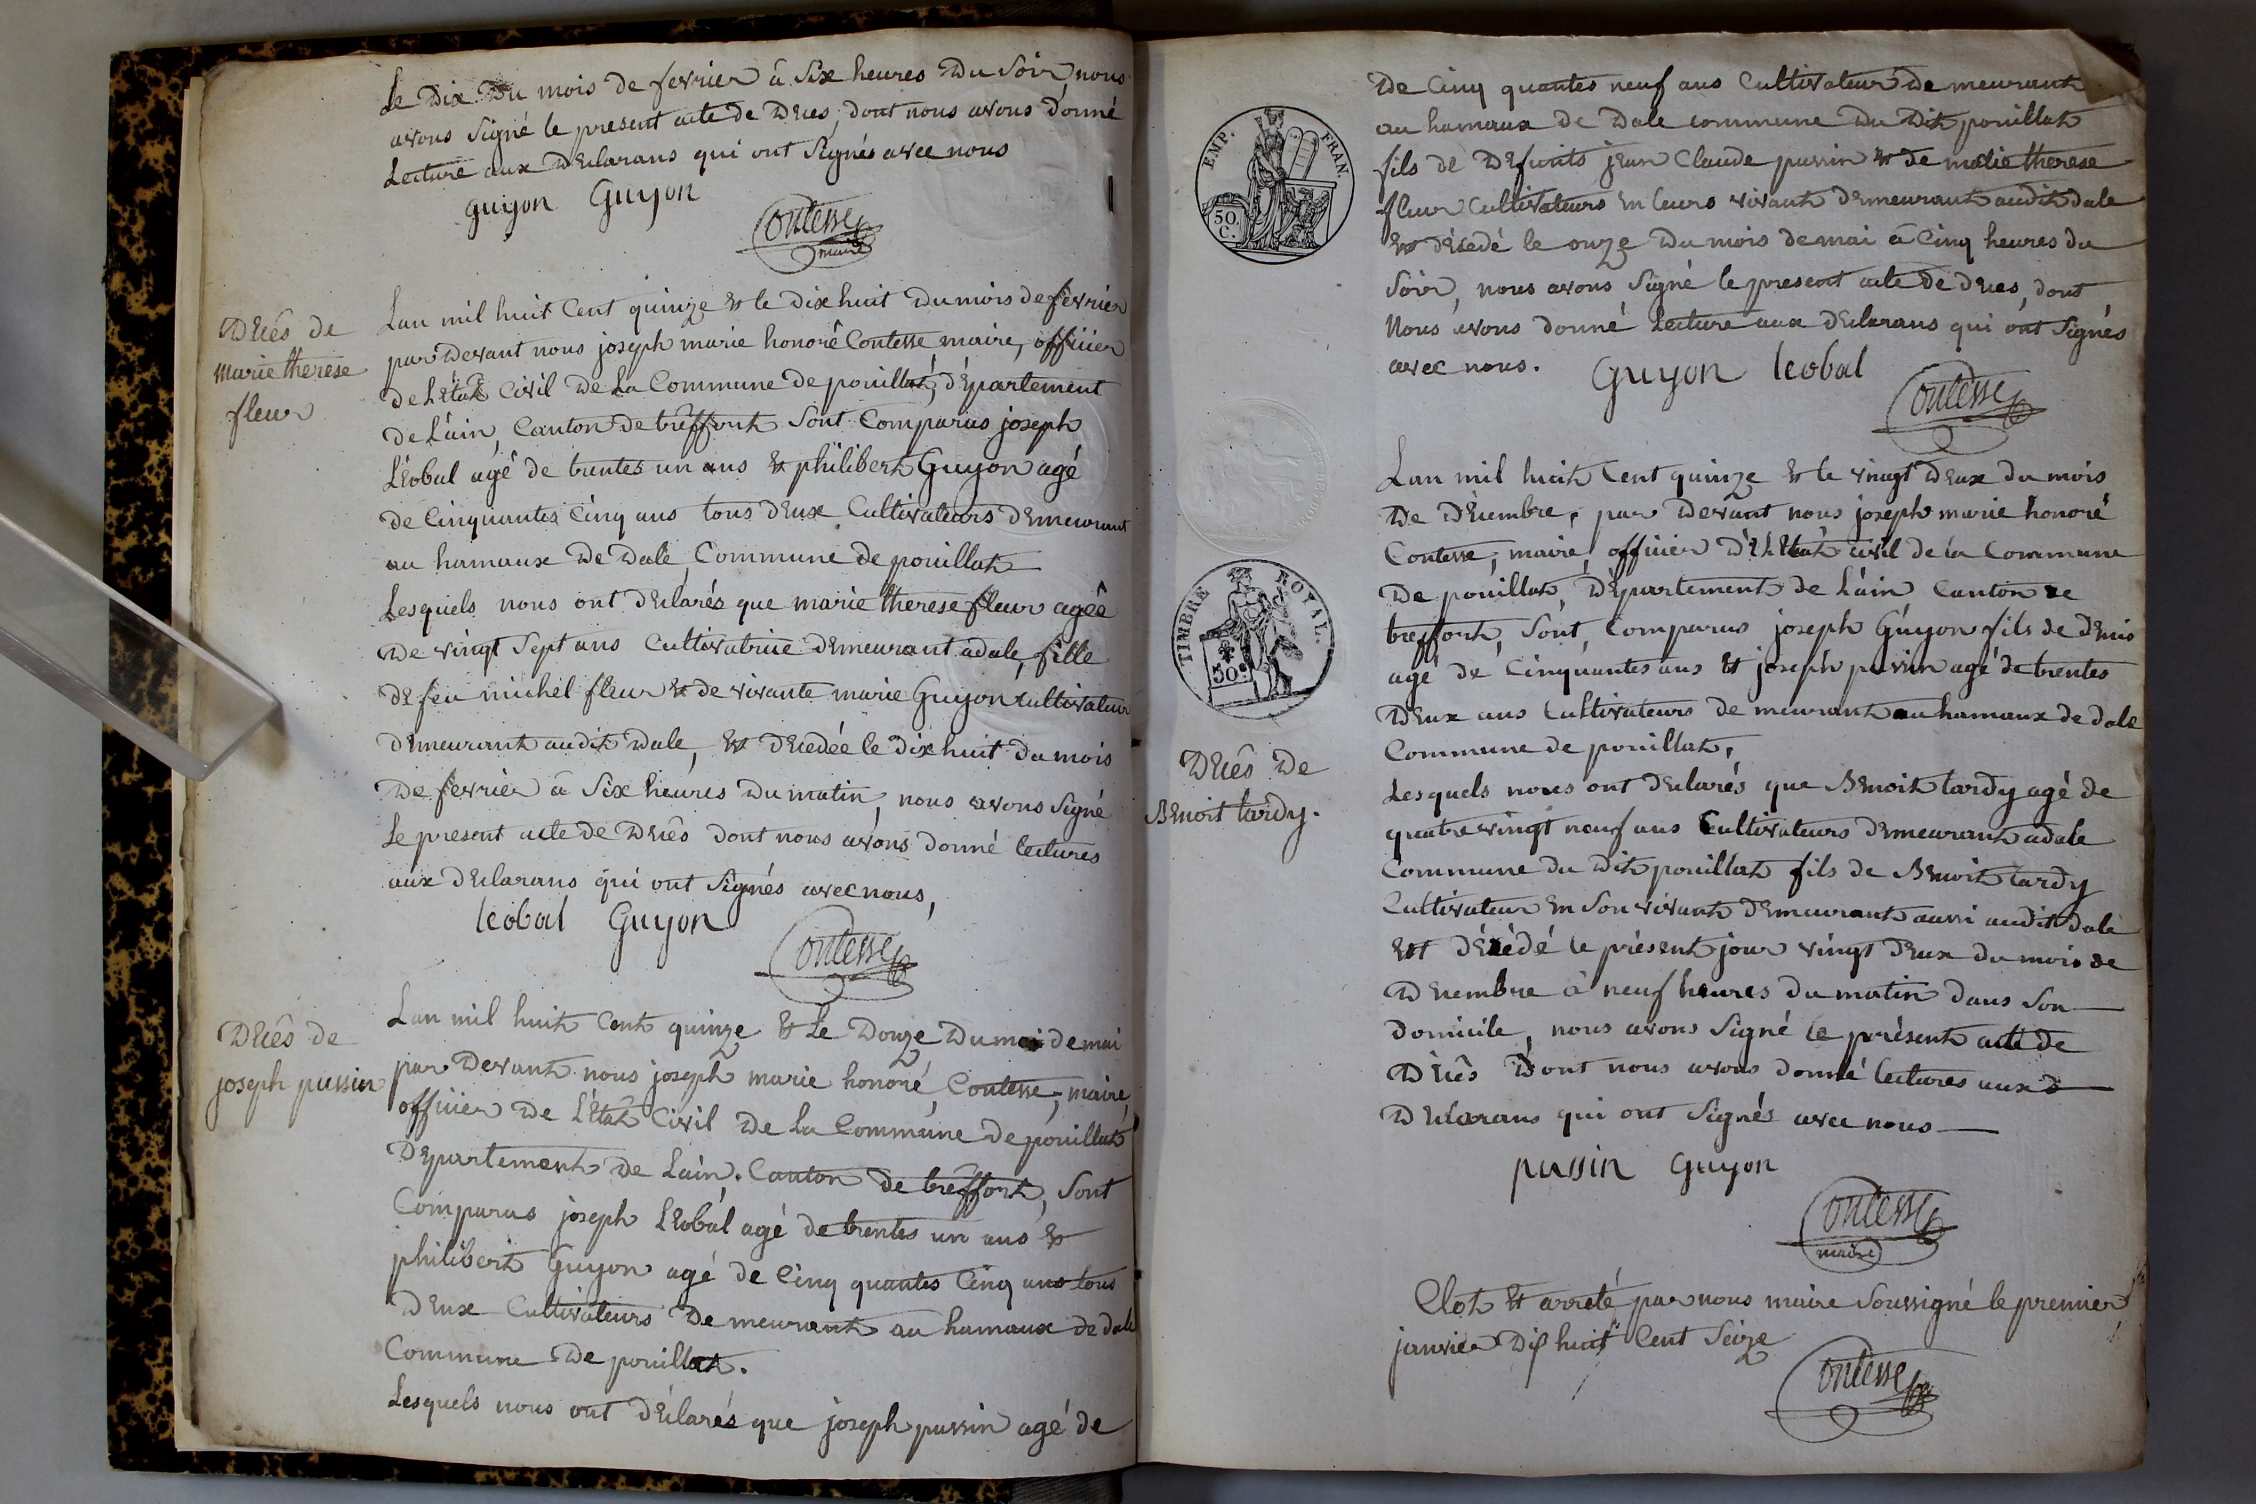 Le dix du mois de fevrier à six heures du soir, nous
avons signé le present acte de deces, dont nous avons donné
Lecture aux declarans qui ont signés avec nous
guyon Guyon
Contesse
maire
Décès de
marie therese
fleur
Lan mil huit Cent quinze et le dix huit du mois de fevrier
par devant nous joseph marie honoré Contesse maire, officier
de L'état Civil de La Commune de pouillat, département
de L'ain, Canton de treffort sont Comparus joseph
Léobal agé de trentes un ans et philibert Guyon agé
de Cinquantes Cinq ans tous deux Cultivateurs demeurant
au hamaux de dale Commune de pouillat
Lesquels nous ont déclarés que marie therese fleur agée
de vingt sept ans Cultivatrice demeurant adale, fille
de feu michel fleur et de vivante marie Guyon Cultivateur
demeurant audit dale, est decedée le dix huit du mois
de fevrier à six heures du matin, nous avons signé
Le present acte de décès dont nous avons donné lectures
aux declarans qui ont signés avec nous,
leobal Guyon
Contesse
Décès de
joseph pussin
Lan mil huit Cent quinze et Le douze du moi de mai
par devant nous joseph marie honoré, Contesse, maire,
officier de L'état Civil de La Commune de pouillat
Departement de Lain. Canton de treffort, sont
Comparus joseph Léobal agé de trentes un ans et
philibert Guyon agé de Cinq quantes Cinq ans tous
deux Cultivateurs de meurant au hamaux de dale
Commune de pouillat.
Lesquels nous ont déclarés que joseph pussin agé de
EMP. FRAN.
50.
C.
de Cinq quantes neuf ans Cultivateur de meurant
au hamaux de dale commune du dit pouillat
fils de defunts jean Claude pussin et de marie therese
fleur Cultivateurs en leurs vivant demeurant audit dale
est décedé le onze du mois de mai à Cinq heures du
soir, nous avons signé le present acte de deces, dont
Nous avons donné Lecture aux declarans qui ont signés
avec nous. Guyon leobal
Contesse
TIMBRE ROYAL.
50c
Décès de
Benoit tardy.
Lan mil huit Cent quinze et le vingt deux du mois
de décembre, par devant nous joseph marie honoré
Contesse, maire, officier de L'état civil de la Commune
de pouillat, département de L'ain Canton de
treffort, sont Comparus joseph Guyon fils de denis
agé de Cinquantes ans et joseph pussin agé de trentes
deux ans Cultivateurs de meurant au hamaux de dale
Commune de pouillat,
Lesquels nous ont declarés que Benoit tardy agé de
quatre vingt neuf ans Cultivateurs demeurant adale
Commune du dit pouillat fils de Benoit tardy
Cultivateur en son vivant demeurant aussi audit dale
est décédé le présent jour vingt deux du mois de
decembre à neuf heures du matin dans son
domicile, nous avons signé le présent acte de
Décès dont nous avons donné lectures aux d
declarans qui ont signés avec nous
pussin Guyon
Contesse
maire
Clot et arreté par nous maire soussigné le premier
janvier dix huit Cent seize
Contesse